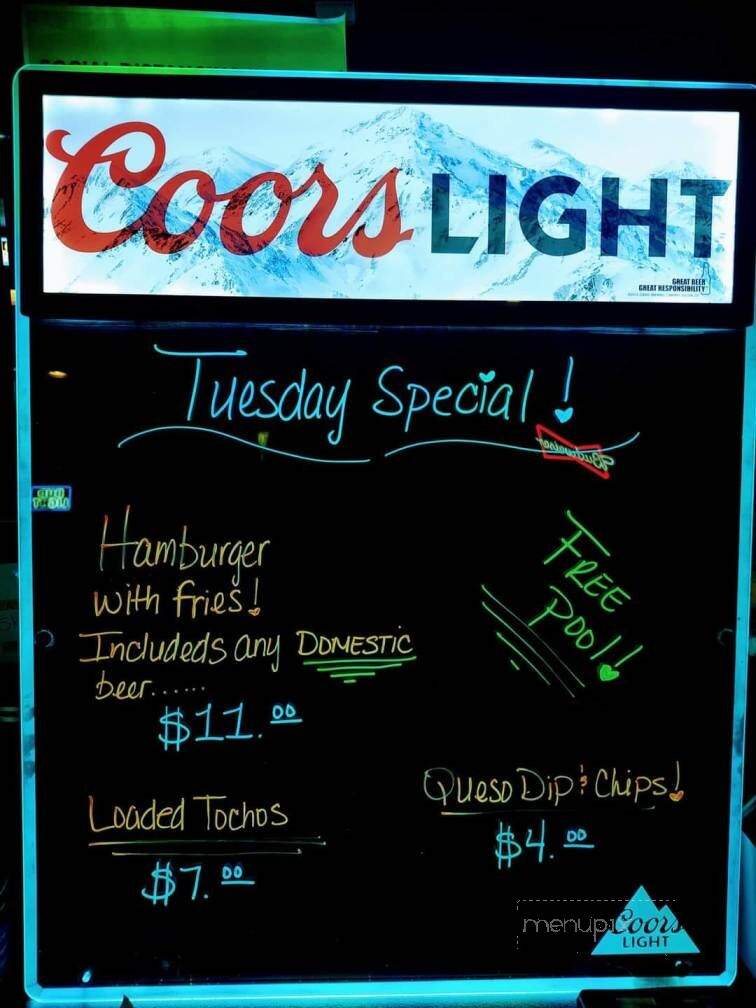 SOCIAL DISTANCING
Coors LIGHT
GREAT BEER
GREAT RESPONSIBILITY
Tuesday Special!
Budweiser
BUD
LIGHT
Hamburger
with fries!
Includeds any DOMESTIC
beer......
$11.00
FREE
Pool!
Loaded Tochos
$7.00
Queso Dip & Chips!
$4.00
menupix
Coors
LIGHT